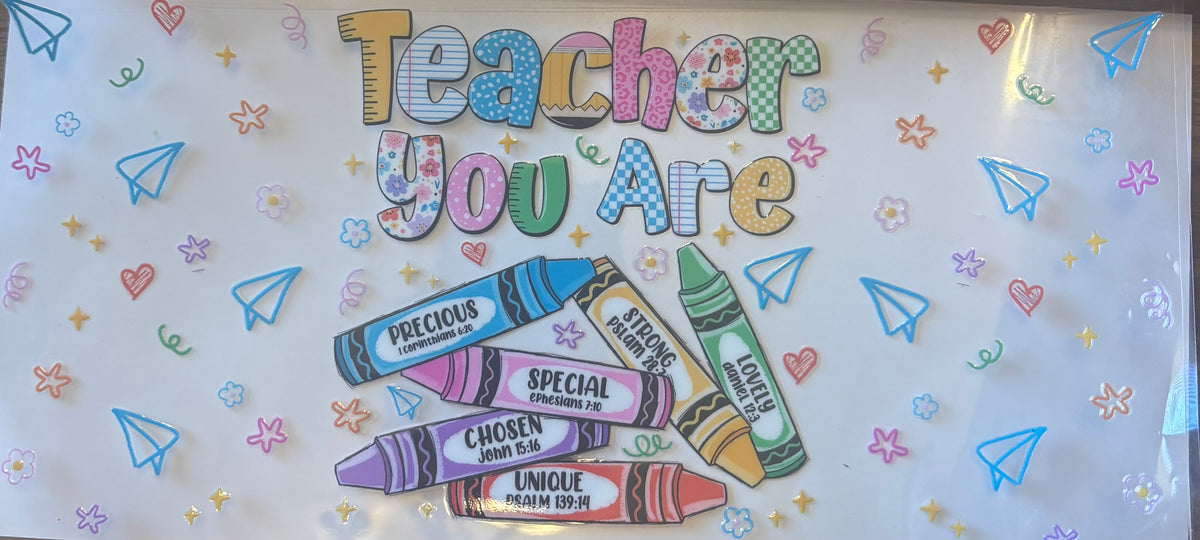 Teacher
You Are
PRECIOUS
1 Corinthians 6:20
STRONG
PSLAM 28:7
LOVELY
daniel 12:3
SPECIAL
ephesians 7:10
CHOSEN
john 15:16
UNIQUE
PSALM 139:14